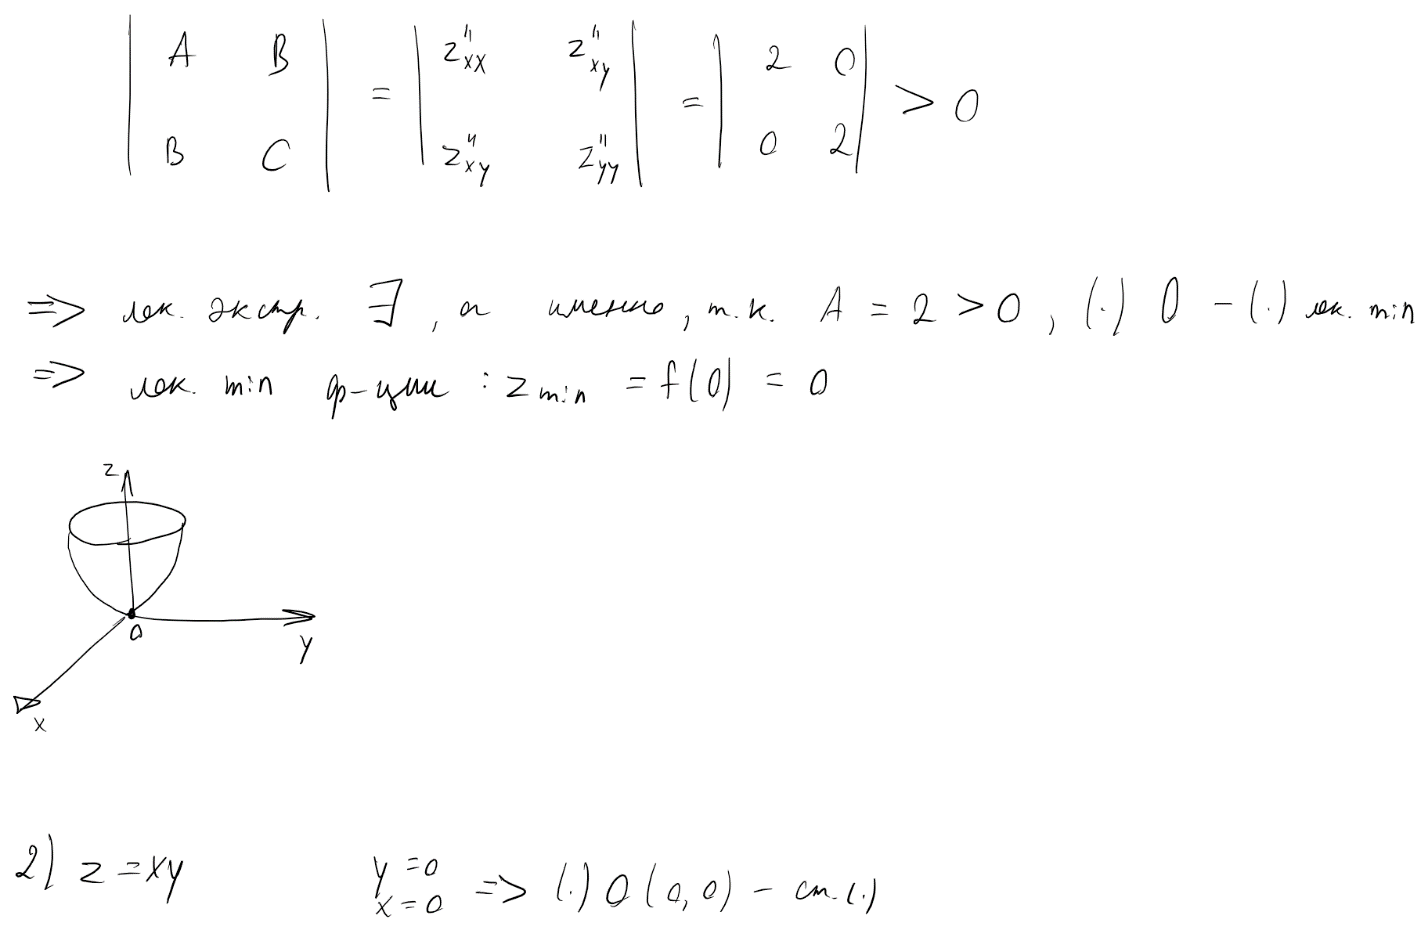 | A B | = | z''xx z''xy | = | 2 0 | > 0
| B C | | z''xy z''yy | | 0 2 |
=> лок. экстр. ∃, а именно, т.к. A = 2 > 0, (·) 0 – (·) лок. min
=> лок. min ф-ции : z min = f(0) = 0
z
0
y
x
2) z = xy y = 0 => (·) 0 (0, 0) – ст. (·)
x = 0